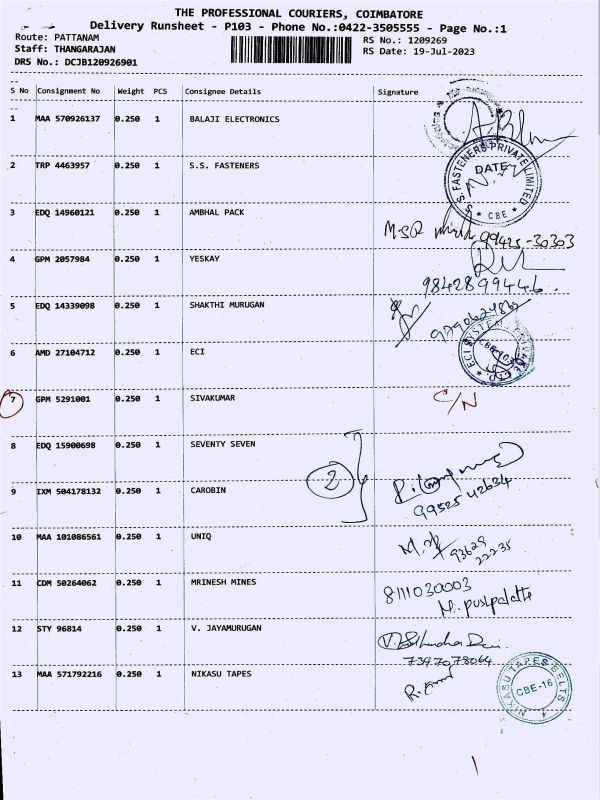 THE PROFESSIONAL COURIERS, COIMBATORE
Delivery Runsheet - P103 - Phone No.:0422-3505555 - Page No.:1
Route: PATTANAM
Staff: THANGARAJAN
DRS No.: DCJB120926901
RS No.: 1209269
RS Date: 19-Jul-2023
S No Consignment No Weight PCS Consignee Details Signature
1 MAA 570926137 0.250 1 BALAJI ELECTRONICS
2 TRP 4463957 0.250 1 S.S. FASTENERS
S.S. FASTENERS PRIVATE LIMITED
DATE
* CBE *
3 EDQ 14960121 0.250 1 AMBHAL PACK
M.SR 99425-30303
4 GPM 2057984 0.250 1 YESKAY
9842899446.
5 EDQ 14339098 0.250 1 SHAKTHI MURUGAN
6 AMD 27104712 0.250 1 ECI
7 GPM 5291001 0.250 1 SIVAKUMAR C/N
8 EDQ 15900698 0.250 1 SEVENTY SEVEN
2
9 IXM 504178132 0.250 1 CAROBIN
99525 42634
10 MAA 101086561 0.250 1 UNIQ
93629
22235
11 CDM 50264062 0.250 1 MRINESH MINES
8111030003
12 STY 96814 0.250 1 V. JAYAMURUGAN
7397078064
13 MAA 571792216 0.250 1 NIKASU TAPES
NIKASU TAPES BELTS
CBE-16